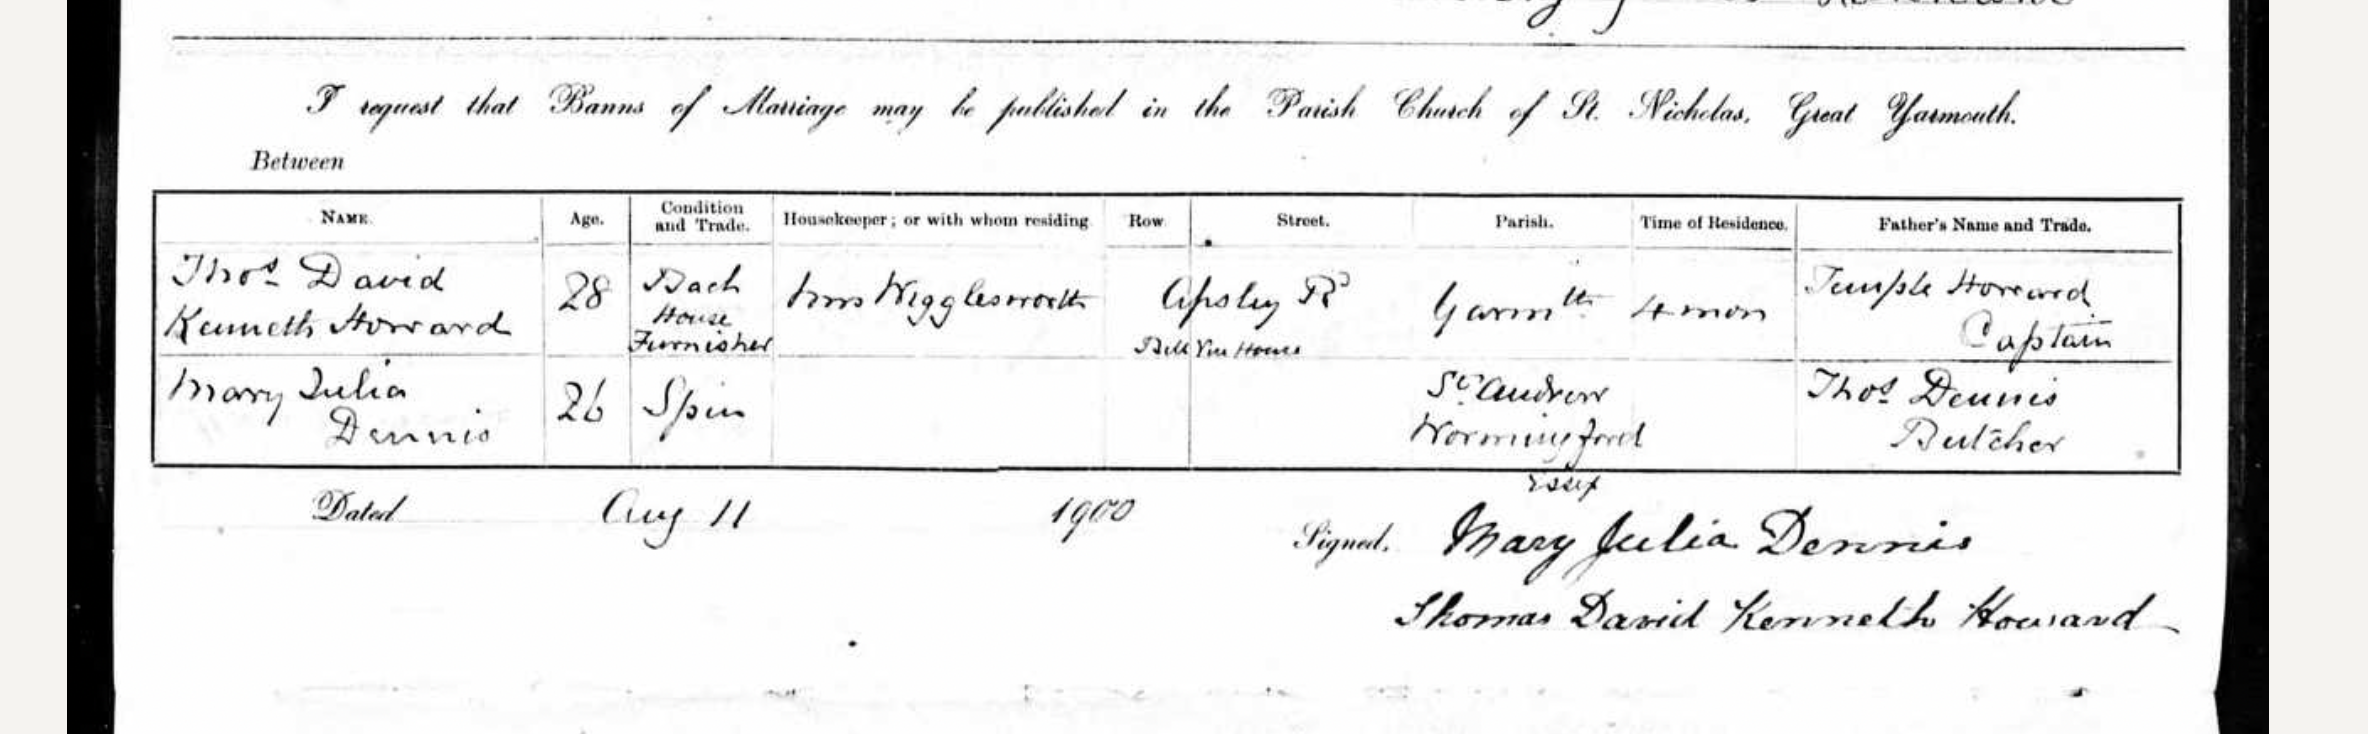 I request that Banns of Marriage may be published in the Parish Church of St. Nicholas, Great Yarmouth.
Between
NAME. Age. Condition and Trade. Housekeeper; or with whom residing Row Street. Parish. Time of Residence. Father's Name and Trade.
Thos David
Kenneth Howard
28
Bach
House
Furnisher
Mrs Wigglesworth
Apsley Rd
House
Yarmth
4 mon
Temple Howard
Captain
Mary Julia
Dennis
26
Spin
St Andrew
Wormingford
Essex
Thos Dennis
Butcher
Dated Aug 11 1900
Signed. Mary Julia Dennis
Thomas David Kenneth Howard